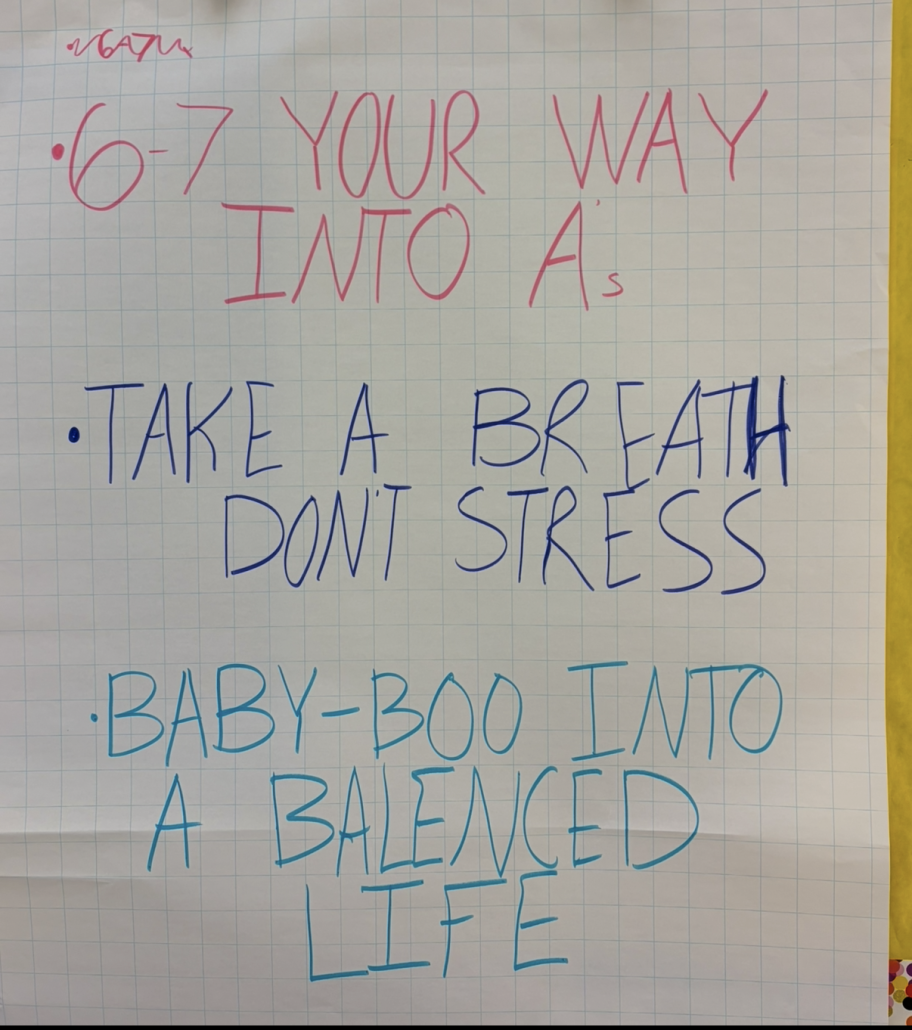 •6-7 YOUR WAY
INTO As
•TAKE A BREATH
DON'T STRESS
•BABY-BOO INTO
A BALENCED
LIFE